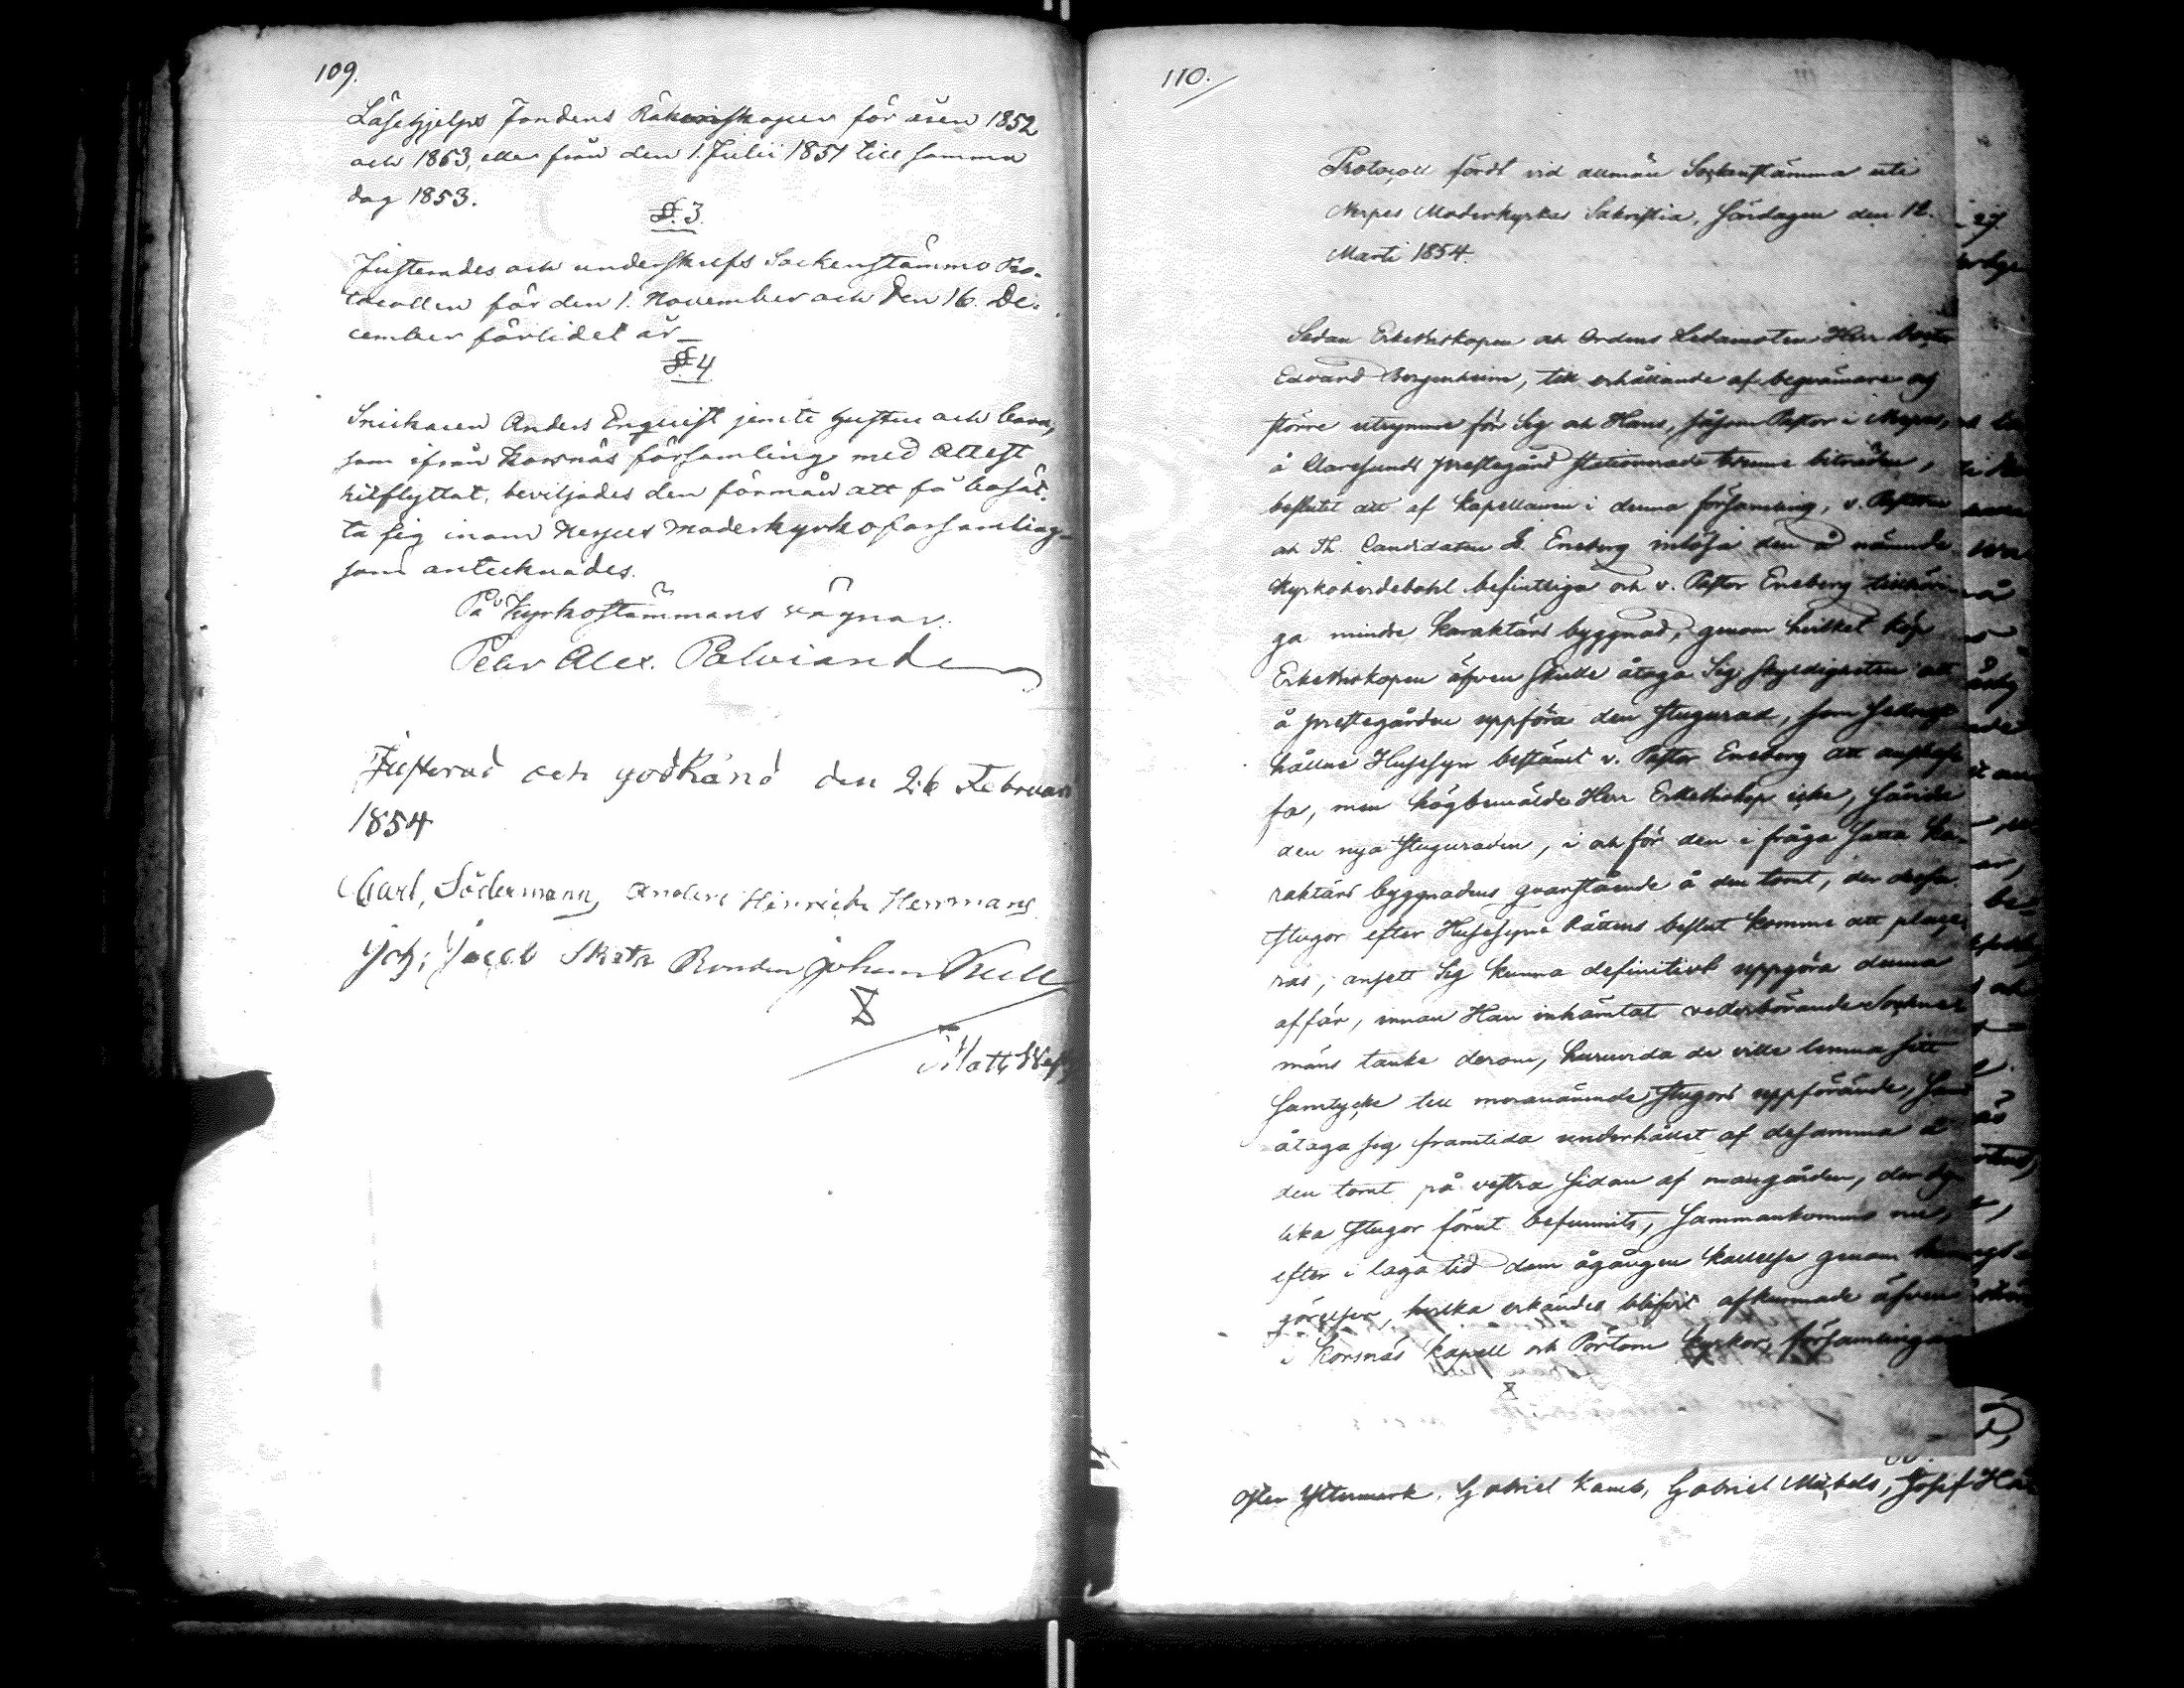 109.
Läsehjelps Fondens Räkenskaper för åren 1852
och 1853, eller från den 1. Julii 1851 till samma
dag 1853.
§. 3.
Justerades och underskrefs Sockenstämmo Pro-
tocollen för den 1. November och den 16. De-
cember förlidet år
§ 4
Snickaren Anders Enquist jemte hustru och barn,
som ifrån Korsnäs församling med attest
hitflyttat, beviljades den förmån att få bosät-
ta sig inom Nerpes Moderkyrkoförsamling
som antecknades.
På Kyrkostämmans vägnar.
Petr Alex.
Justerad och godkänd den 26 Februari
1854
Carl Södermann, Anders Hinrich Herrmans
Joh: Jacob Skata Johan
Matts
110.
Protocoll fördt vid allmän Sockenstämma uti
Nerpes Moderkyrkas Sakristia, Söndagen den 12.
Marti 1854.
Sedan Erkebiskopen och Ordens Ledamoten Herr Doctor
Edvard Bergenheim, till erhållande af beqvämare och
större utrymme för Sig och Hans, såsom Pastor i Nerpes,
å Claresunds prestegård stationerade tvenne biträden,
beslutit att af Kapellanen i denna församling, v. Pastorn
och Th. Candidaten E. Eneberg inlösa den å nämnde
Kyrkoherdebohl befintliga och v. Pastor Eneberg tillhöri-
ga mindre karaktärs byggnad, genom hvilket köp
Erkebiskopen äfven skulle åtaga Sig skyldigheten att
å prestegården uppföra den stugurad, som
hållne Husesyn bestämt v. Pastor Eneberg att
fa, men högbemälde Herr Erkebiskop icke, såvida
den nya stuguraden, i och för den i fråga satta ka-
raktärs byggnadens qvarstående å den tomt, der dessa
stugor efter Husesyns Rättens beslut komme att place-
ras, ansett Sig kunna definitivt uppgöra denna
affär, innan Han inhämtat vederbörande Sockne-
mäns tanke derom, huruvida de ville lemna sitt
samtycke till meranämnde stugors uppförande, samt
åtaga sig framtida underhållet af desamma å
den tomt på vestra sidan af mangården, der dy-
lika stugor förut befunnits, sammankommo nu,
efter i laga tid dem ågången kallelse genom kungö-
görelser, hvilka erkändes blifvit afkunnade äfven
i Korsnäs kapell och Pörtom kyrkor, församlingens
Öster Yttermark, Gabriel Kamb, Gabriel Michels, Josef